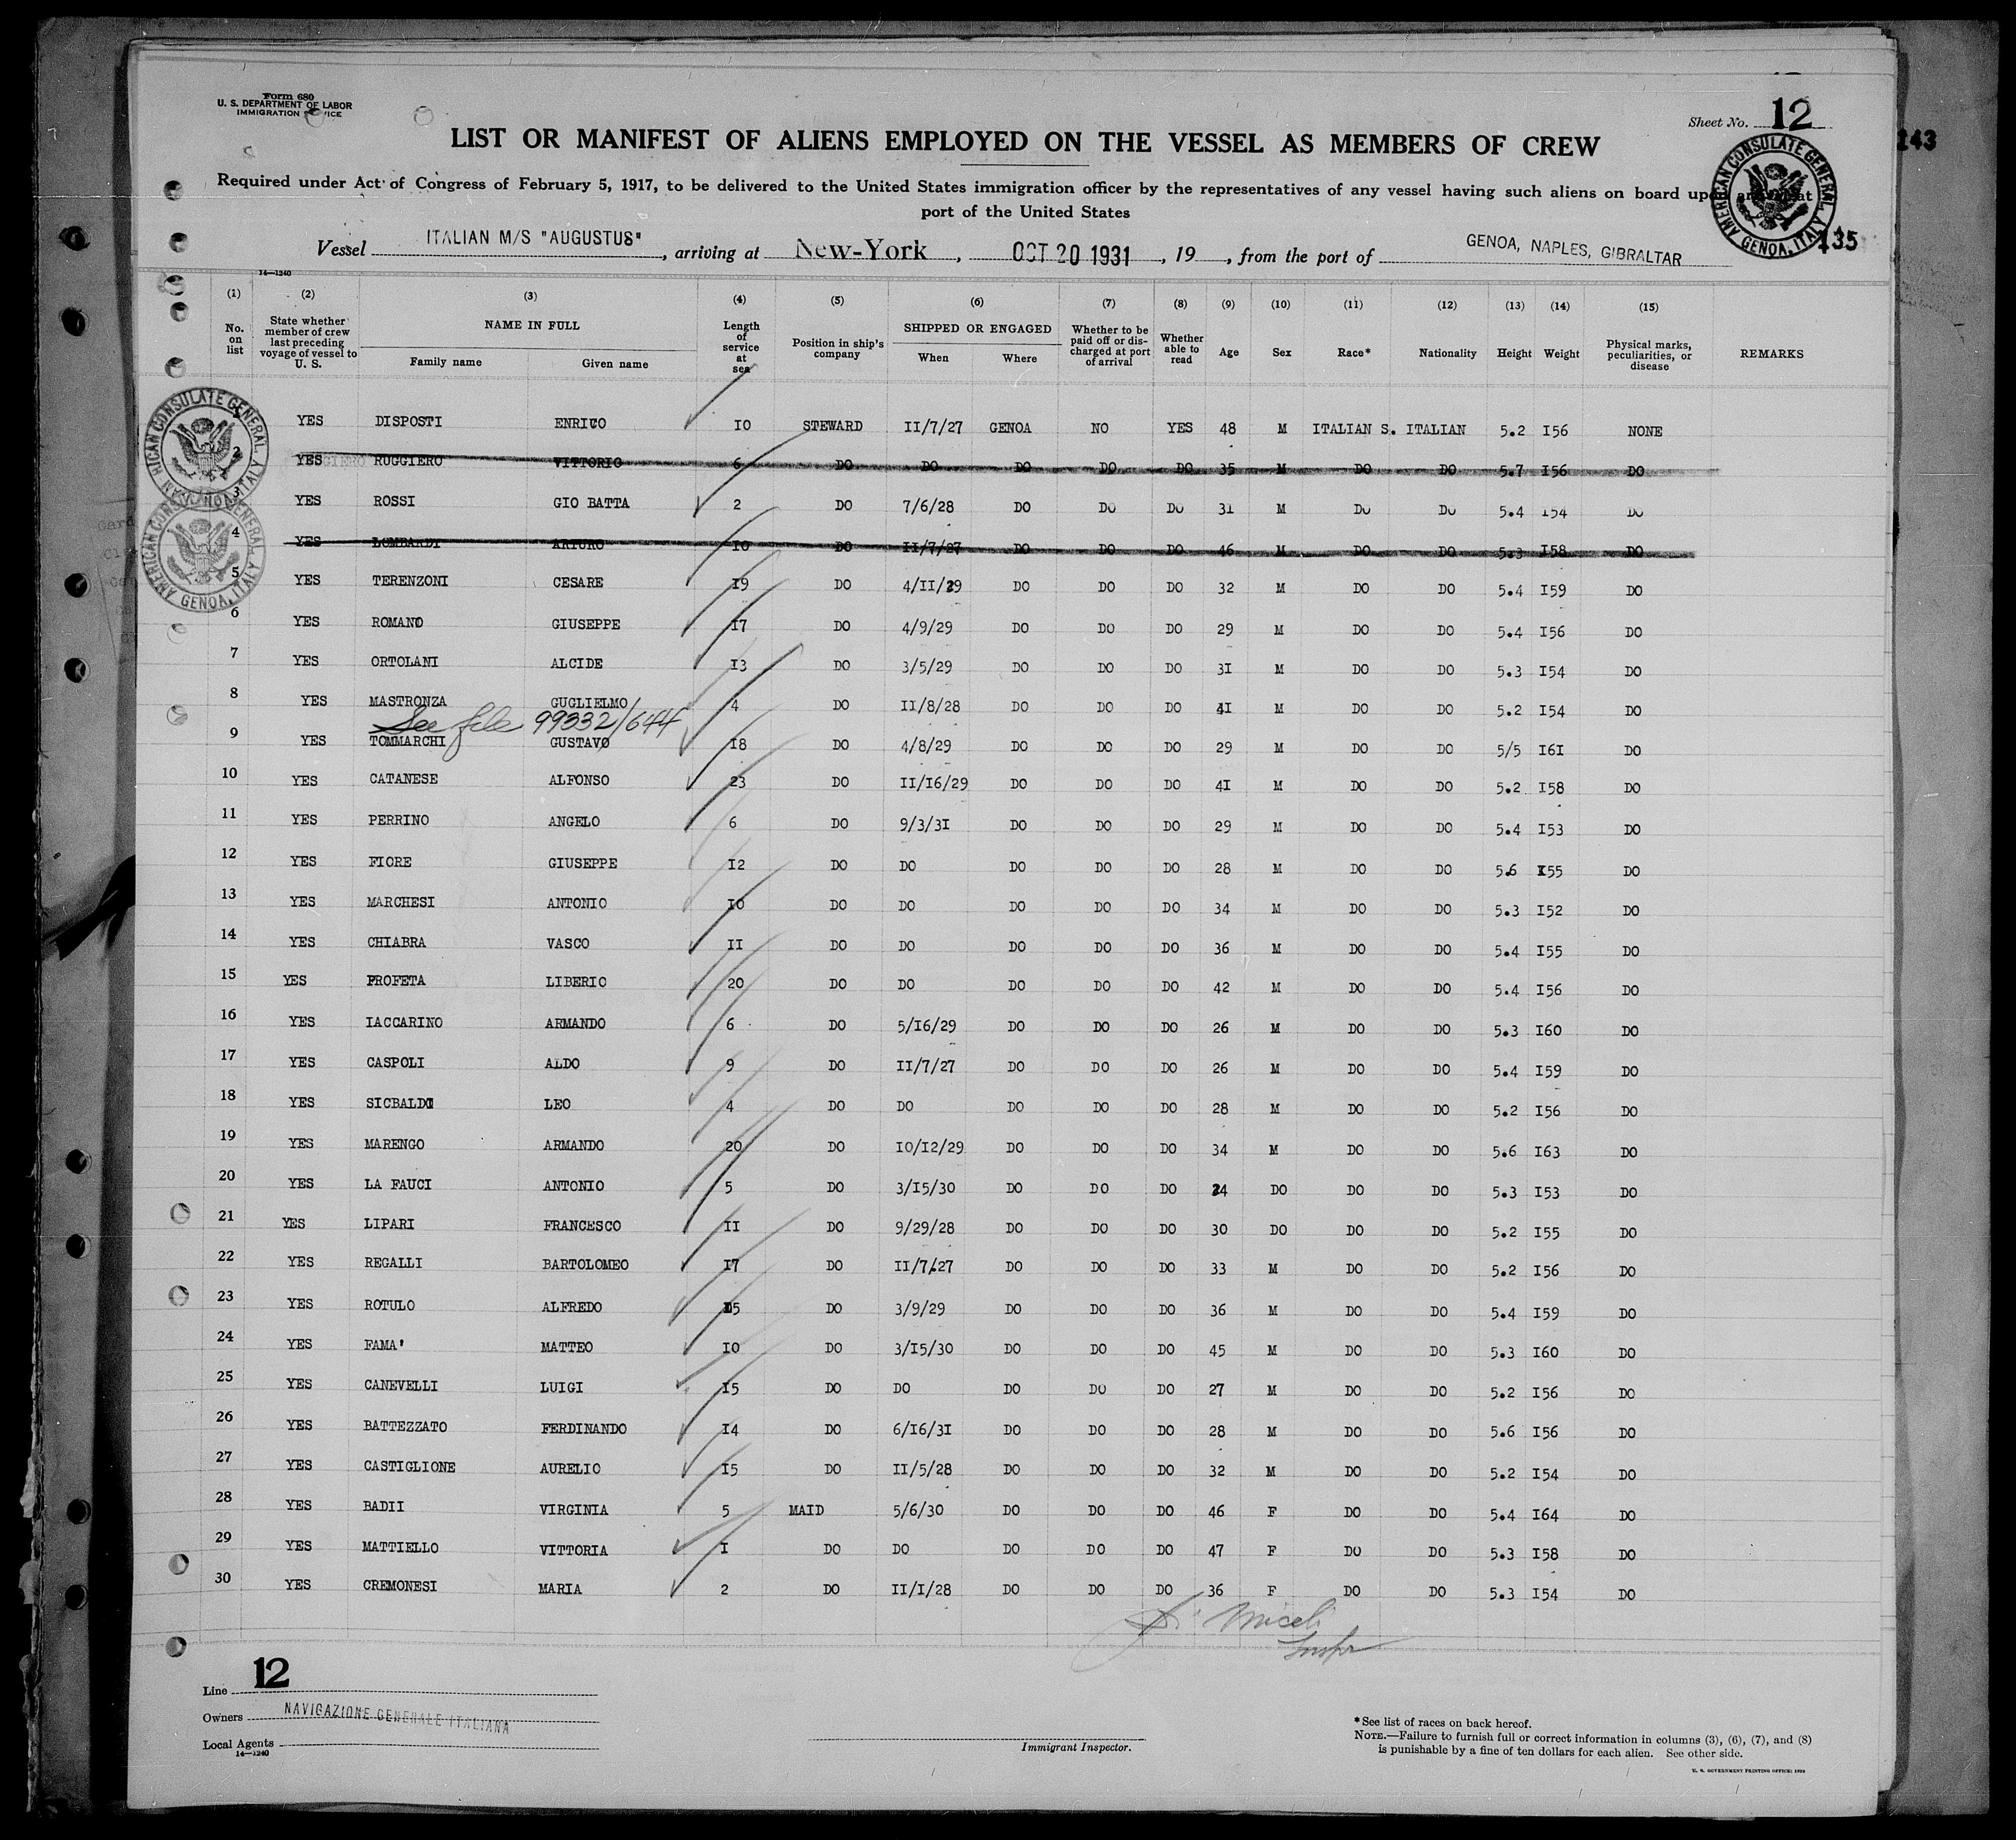 Form 680
U. S. DEPARTMENT OF LABOR
IMMIGRATION SERVICE
Sheet No. 12
143
LIST OR MANIFEST OF ALIENS EMPLOYED ON THE VESSEL AS MEMBERS OF CREW
Required under Act of Congress of February 5, 1917, to be delivered to the United States immigration officer by the representatives of any vessel having such aliens on board upon arrival at
port of the United States
AMERICAN CONSULATE GENERAL GENOA, ITALY
135
Vessel ITALIAN M/S "AUGUSTUS", arriving at New-York, OCT 20 1931, 19, from the port of GENOA, NAPLES, GIBRALTAR
14—1240
(1) No. on list (2) State whether member of crew last preceding voyage of vessel to U. S. (3) NAME IN FULL Family name Given name (4) Length of service at sea (5) Position in ship's company (6) SHIPPED OR ENGAGED When Where (7) Whether to be paid off or discharged at port of arrival (8) Whether able to read (9) Age (10) Sex (11) Race* (12) Nationality (13) Height (14) Weight (15) Physical marks, peculiarities, or disease REMARKS
AMERICAN CONSULATE GENERAL GENOA, ITALY
AMERICAN CONSULATE GENERAL GENOA, ITALY
1 YES DISPOSTI ENRICO IO STEWARD II/7/27 GENOA NO YES 48 M ITALIAN S. ITALIAN 5.2 I56 NONE
2 YES RUGGIERO VITTORIO 6 DO DO DO DO DO 35 M DO DO 5.7 I56 DO
3 YES ROSSI GIO BATTA 2 DO 7/6/28 DO DO DO 31 M DO DO 5.4 I54 DO
4 YES LOMBARDI ARTURO IO DO II/7/27 DO DO DO 46 M DO DO 5.3 I58 DO
5 YES TERENZONI CESARE I9 DO 4/II/29 DO DO DO 32 M DO DO 5.4 I59 DO
6 YES ROMANO GIUSEPPE I7 DO 4/9/29 DO DO DO 29 M DO DO 5.4 I56 DO
7 YES ORTOLANI ALCIDE I3 DO 3/5/29 DO DO DO 3I M DO DO 5.3 I54 DO
8 YES MASTRONZA GUGLIELMO 4 DO II/8/28 DO DO DO 4I M DO DO 5.2 I54 DO
See file 99332/644
9 YES TOMMARCHI GUSTAVO I8 DO 4/8/29 DO DO DO 29 M DO DO 5/5 I6I DO
10 YES CATANESE ALFONSO 23 DO II/I6/29 DO DO DO 4I M DO DO 5.2 I58 DO
11 YES PERRINO ANGELO 6 DO 9/3/3I DO DO DO 29 M DO DO 5.4 I53 DO
12 YES FIORE GIUSEPPE I2 DO DO DO DO DO 28 M DO DO 5.6 I55 DO
13 YES MARCHESI ANTONIO IO DO DO DO DO DO 34 M DO DO 5.3 I52 DO
14 YES CHIABRA VASCO II DO DO DO DO DO 36 M DO DO 5.4 I55 DO
15 YES PROFETA LIBERIO 20 DO DO DO DO DO 42 M DO DO 5.4 I56 DO
16 YES IACCARINO ARMANDO 6 DO 5/I6/29 DO DO DO 26 M DO DO 5.3 I60 DO
17 YES CASPOLI ALDO 9 DO II/7/27 DO DO DO 26 M DO DO 5.4 I59 DO
18 YES SICBALDI LEO 4 DO DO DO DO DO 28 M DO DO 5.2 I56 DO
19 YES MARENGO ARMANDO 20 DO IO/I2/29 DO DO DO 34 M DO DO 5.6 I63 DO
20 YES LA FAUCI ANTONIO 5 DO 3/I5/30 DO DO DO 24 DO DO DO 5.3 I53 DO
21 YES LIPARI FRANCESCO II DO 9/29/28 DO DO DO 30 DO DO DO 5.2 I55 DO
22 YES REGALLI BARTOLOMEO I7 DO II/7/27 DO DO DO 33 M DO DO 5.2 I56 DO
23 YES ROTULO ALFREDO I5 DO 3/9/29 DO DO DO 36 M DO DO 5.4 I59 DO
24 YES FAMA' MATTEO IO DO 3/I5/30 DO DO DO 45 M DO DO 5.3 I60 DO
25 YES CANEVELLI LUIGI I5 DO DO DO DO DO 27 M DO DO 5.2 I56 DO
26 YES BATTEZZATO FERDINANDO I4 DO 6/I6/3I DO DO DO 28 M DO DO 5.6 I56 DO
27 YES CASTIGLIONE AURELIO I5 DO II/5/28 DO DO DO 32 M DO DO 5.2 I54 DO
28 YES BADII VIRGINIA 5 MAID 5/6/30 DO DO DO 46 F DO DO 5.4 I64 DO
29 YES MATTIELLO VITTORIA I DO DO DO DO DO 47 F DO DO 5.3 I58 DO
30 YES CREMONESI MARIA 2 DO II/I/28 DO DO DO 36 F DO DO 5.3 I54 DO
Di Miceli
Inspr
Line 12
Owners NAVIGAZIONE GENERALE ITALIANA
Local Agents
14—1240
Immigrant Inspector.
*See list of races on back hereof.
NOTE.—Failure to furnish full or correct information in columns (3), (6), (7), and (8)
is punishable by a fine of ten dollars for each alien. See other side.